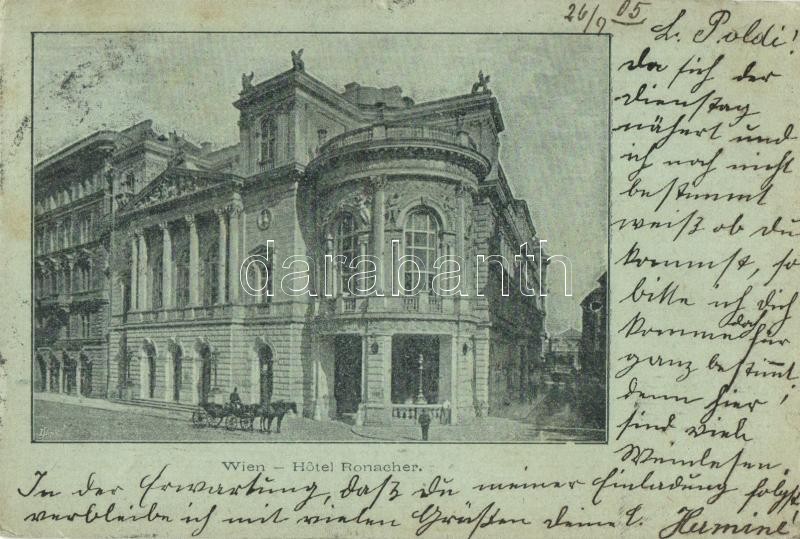 26/9 05
L. Poldi!
Da sich der
Dienstag
nähert und
ich noch nicht
bestimmt
weiß ob du
kommst, so
bitte ich dich
komme doch für
ganz bestimmt
denn hier!
sind viele
Weinlesen.
darabanth
Wien – Hôtel Ronacher.
In der Erwartung, daß du meiner Einladung folgst
verbleibe ich mit vielen Grüßten deine l. Hermine!